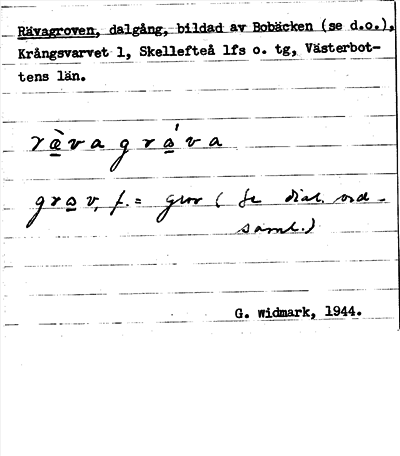 Rävagroven, dalgång, bildad av Bobäcken (se d.o.),
Krångsvarvet 1, Skellefteå lfs o. tg, Västerbot-
tens län.
ræ̀vagrɷ́va
grɷv, f. = grov (se dial. ord-
saml.)
G. Widmark, 1944.